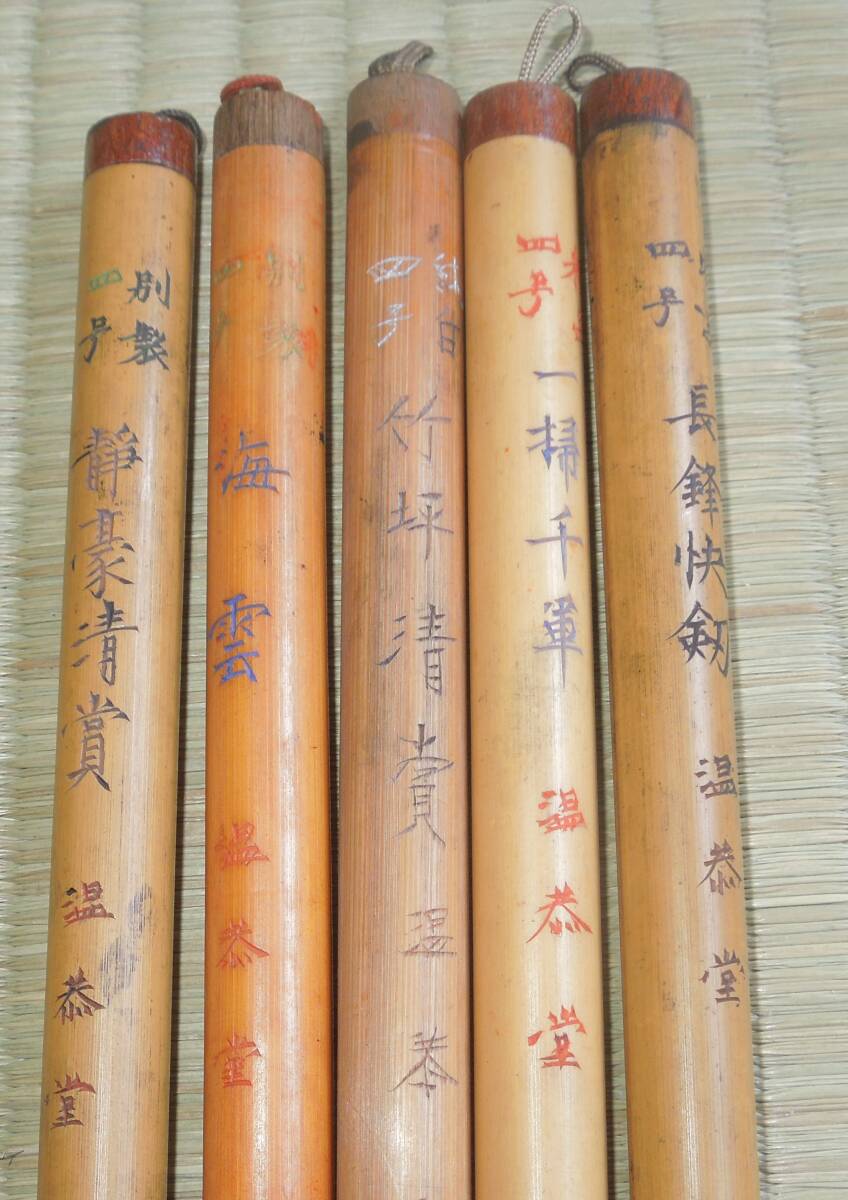 別製
四号
靜豪清賞
温恭堂
別製
四号
海雲
温恭堂
純白
四号
竹坪清賞
温恭
四号
一掃千軍
温恭堂
四号
長鋒快剱
温恭堂